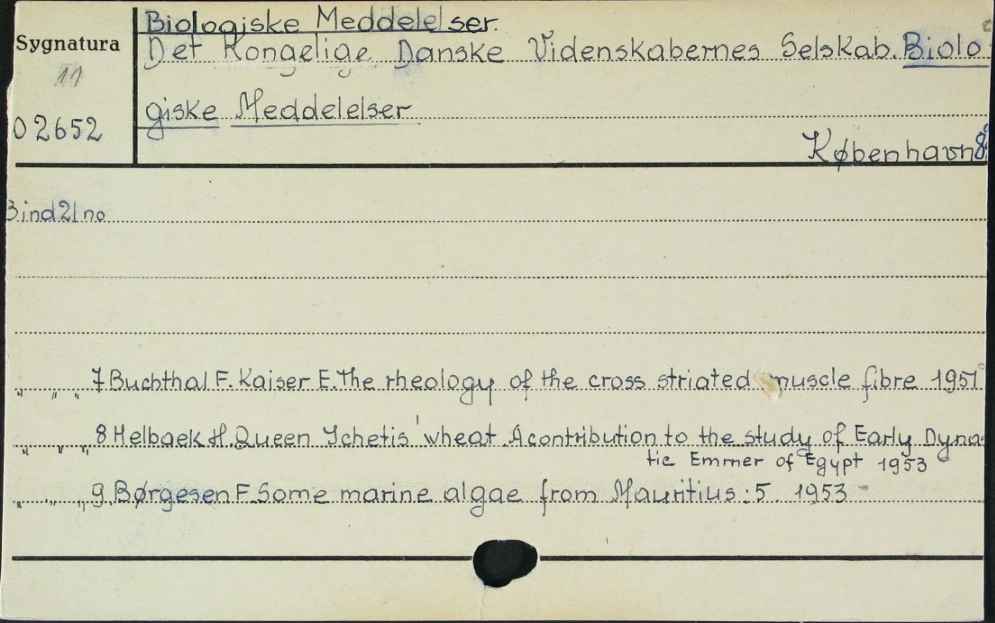 Biologiske Meddelelser.
Sygnatura
Det Kongelige Danske Videnskabernes Selskab. Biolo
11
giske Meddelelser
02652
København
Bind 21 no
„ „ „ 7 Buchthal F. Kaiser E. The rheology of the cross striated muscle fibre 1951
„ „ „ 8 Helbaek H. Queen Ichetis' wheat. A contribution to the study of Early Dyna-
tic Emmer of Egypt 1953
„ „ „ 9. Børgesen F. Some marine algae from Mauritius: 5 1953 -